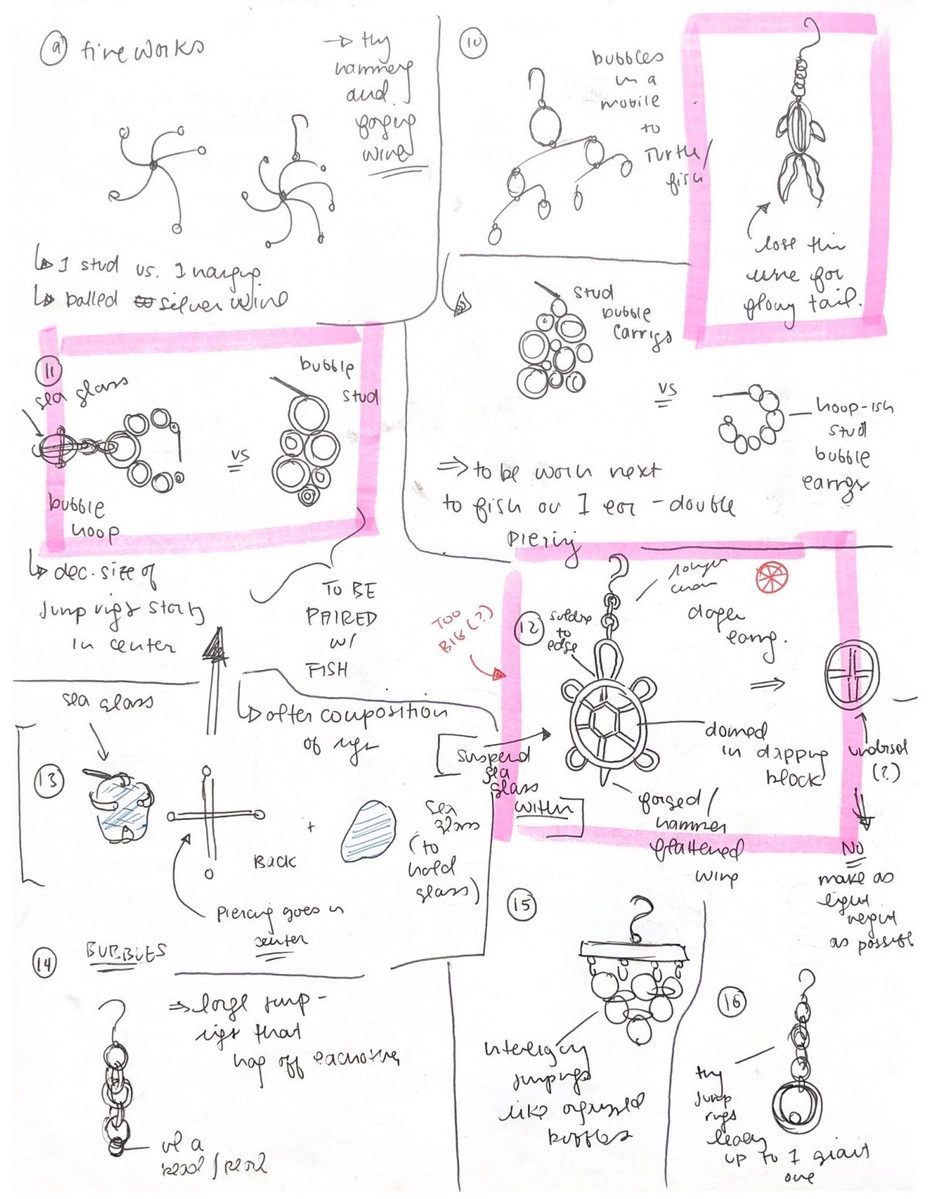 9 fireworks
→ try
hammery
and
forging
wire
↳ 1 stud vs. 1 hanging
↳ balled silver wire
10
bubbles
in a
mobile
to
Turtle/
fish
lose thin
wire for
flowy tail.
stud
bubble
earrigs
vs
hoop-ish
stud
bubble
earrigs
⇒ to be worn next
to fish on 1 ear - double
piercing
11
sea glass
bubble
stud
vs
bubble
hoop
↳ dec. size of
jump rigs startig
in center
TO BE
PAIRED
W/
FISH
↳ after composition
of rigs
TOO
BIG (?)
12
solder
to
edge
longer
chain
earrg.
suspend
sea
glass
within
domed
in dapping
block
forged/
hammer
flattened
wire
underside
(?)
NO
make as
light
weight
as possible
sea glass
13
+
Back
sea
glass
(to
hold
glass)
Piercing goes in
center
14 BUBBLES
⇒ large jump-
rigs that
hang off eachother
w/ a
bead/pearl
15
interlocking
jumprigs
like
bubbles
16
try
jump
rigs
leading
up to 1 giant
one